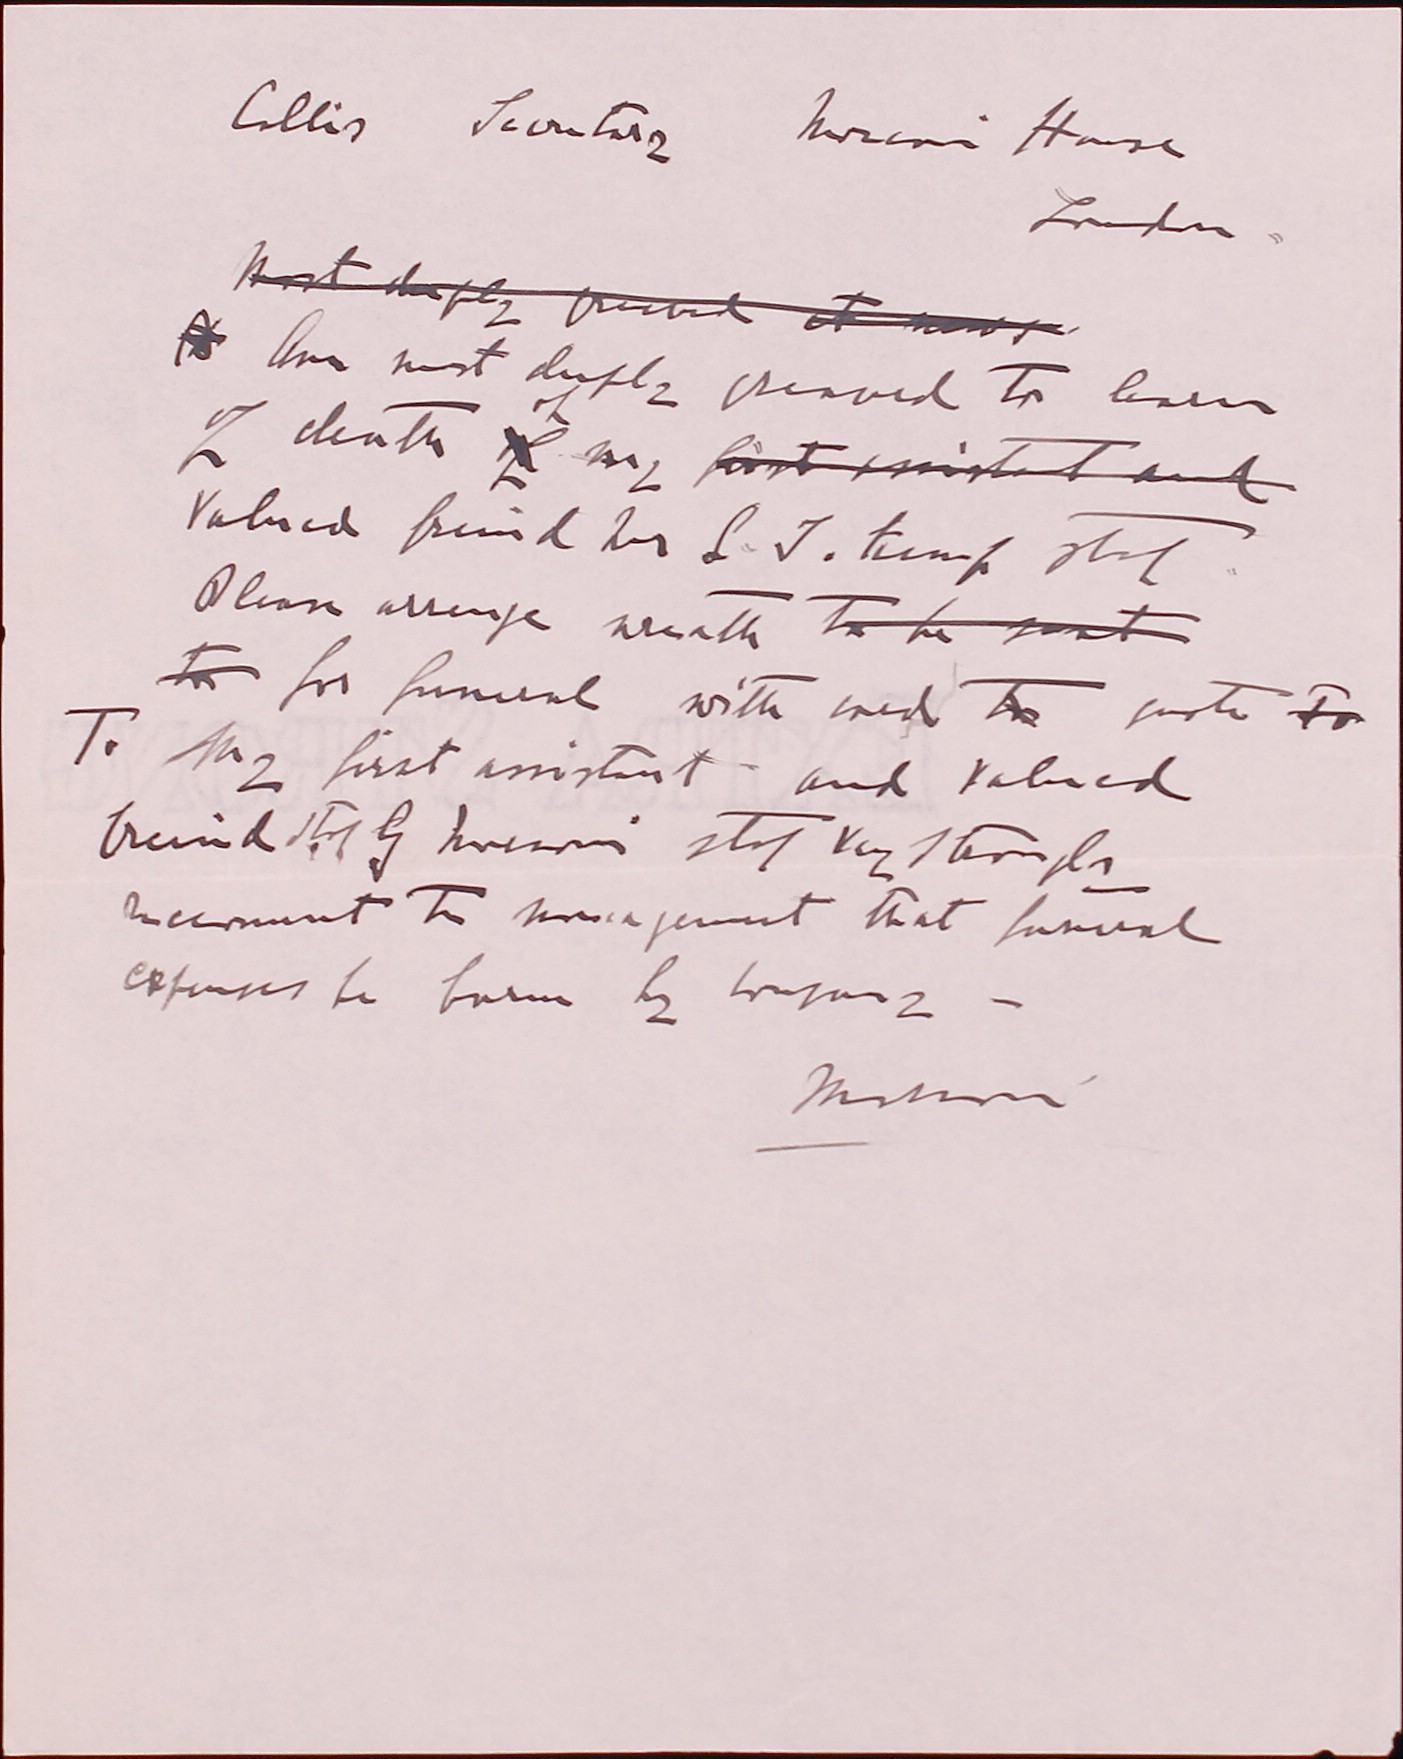 Collis Secretary Marconi House
London.
Most deeply grieved at news
Am most deeply greaved to learn
of death of my first assistant and
valued freind Mr G. S. Kemp stop.
Please arrange wreath to be sent
to for funeral with card to quote To
To My first assistant and valued
freind stop G Marconi stop Very strongly
recommend to management that funeral
expenses be borne by company –
Marconi